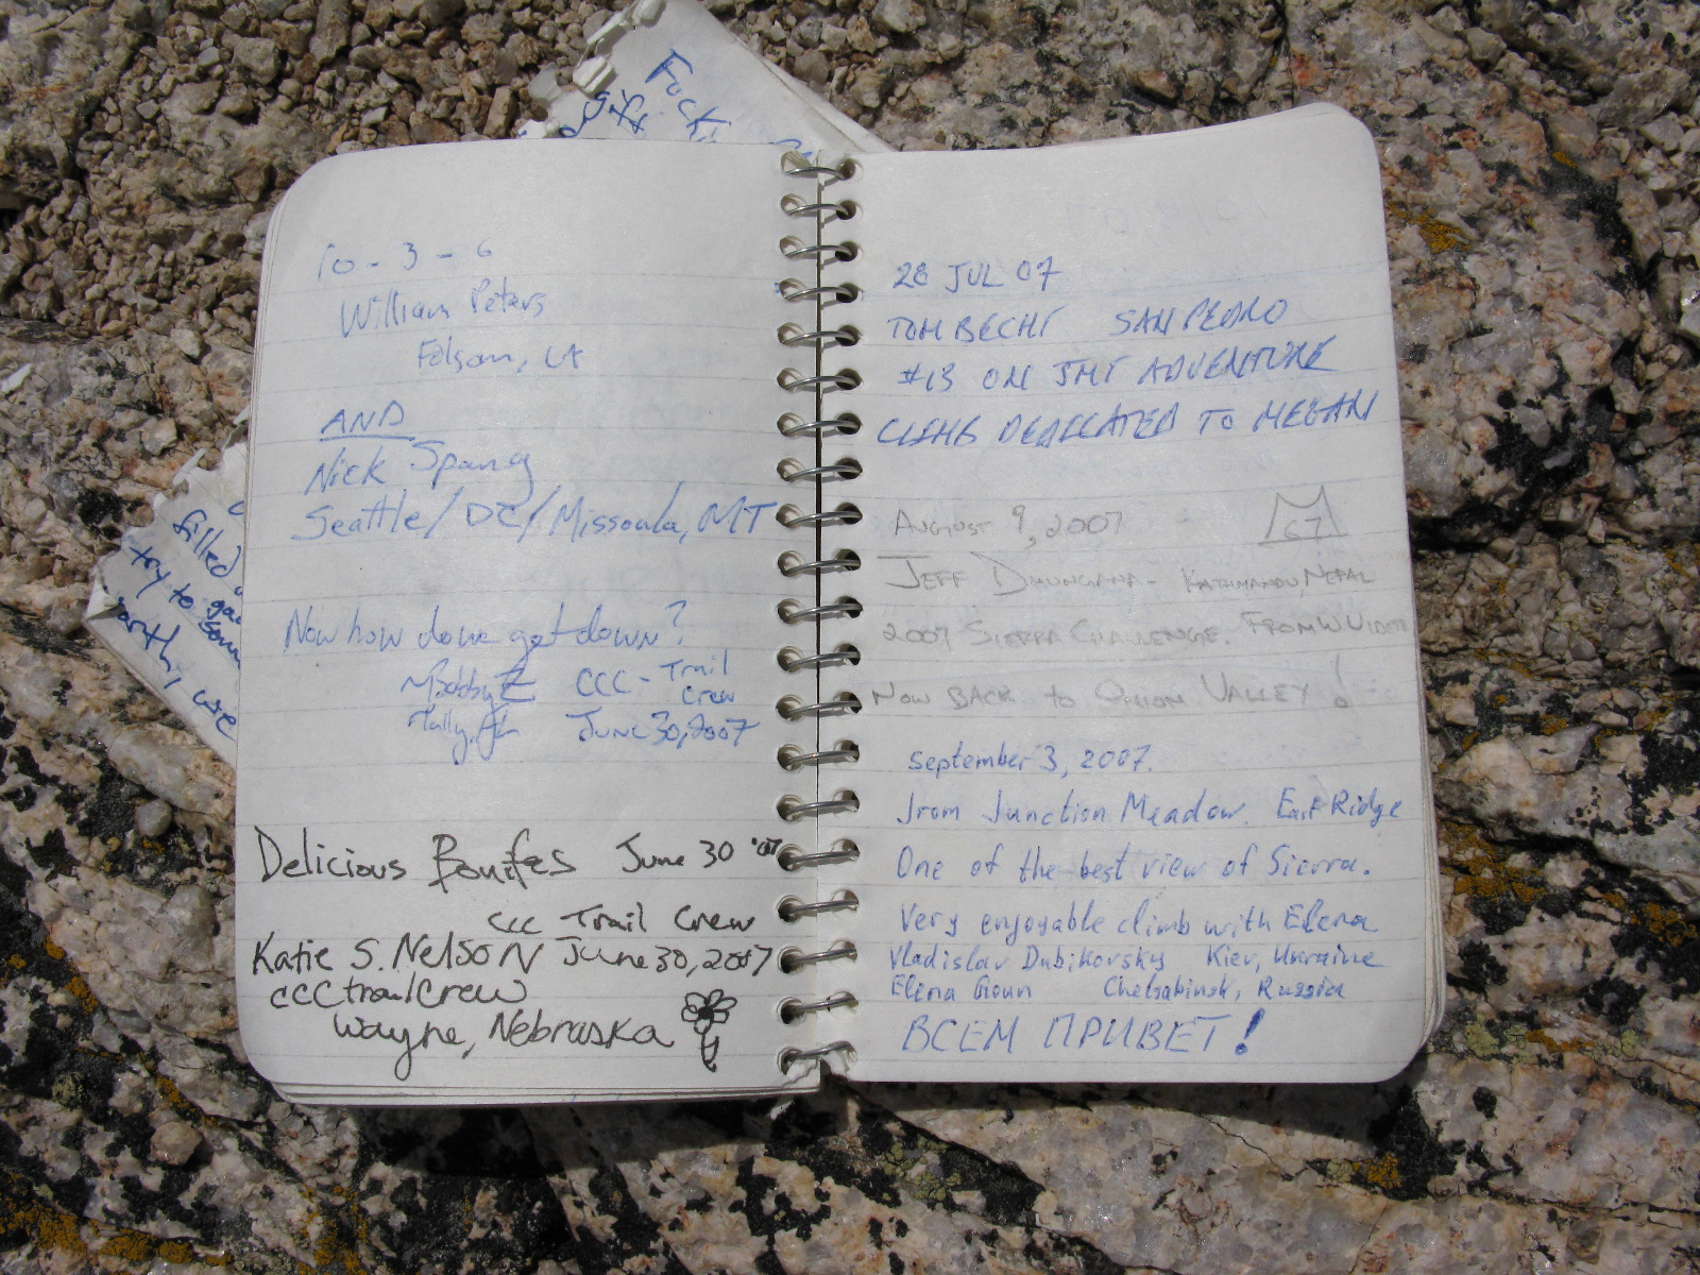 Fuck
gift
filled
try to
earth, we
10 - 3 - 6
William Peters
Folsom, CA
AND
Nick Spang
Seattle/DC/Missoula, MT
Now how do we get down?
Bobby CCC - Trail
Crew
June 30, 2007
Delicious June 30 '07
CCC Trail Crew
Katie S. Nelson June 30, 2007
CCC trail crew
Wayne, Nebraska
28 JUL 07
TOM BECHT SAN PEDRO
#13 ON JMT ADVENTURE
CLIMB DEDICATED TO MEGAN
August 9, 2007
67
Jeff Dhungana - Kathmandu, Nepal
2007 Sierra Challenge. From W Vidette
Now back to Onion Valley!
September 3, 2007.
from Junction Meadow. East Ridge
One of the best view of Sierra.
Very enjoyable climb with Elena
Vladislav Dubikovsky Kiev, Ukraine
Elena Goun Chelyabinsk, Russia
ВСЕМ ПРИВЕТ!